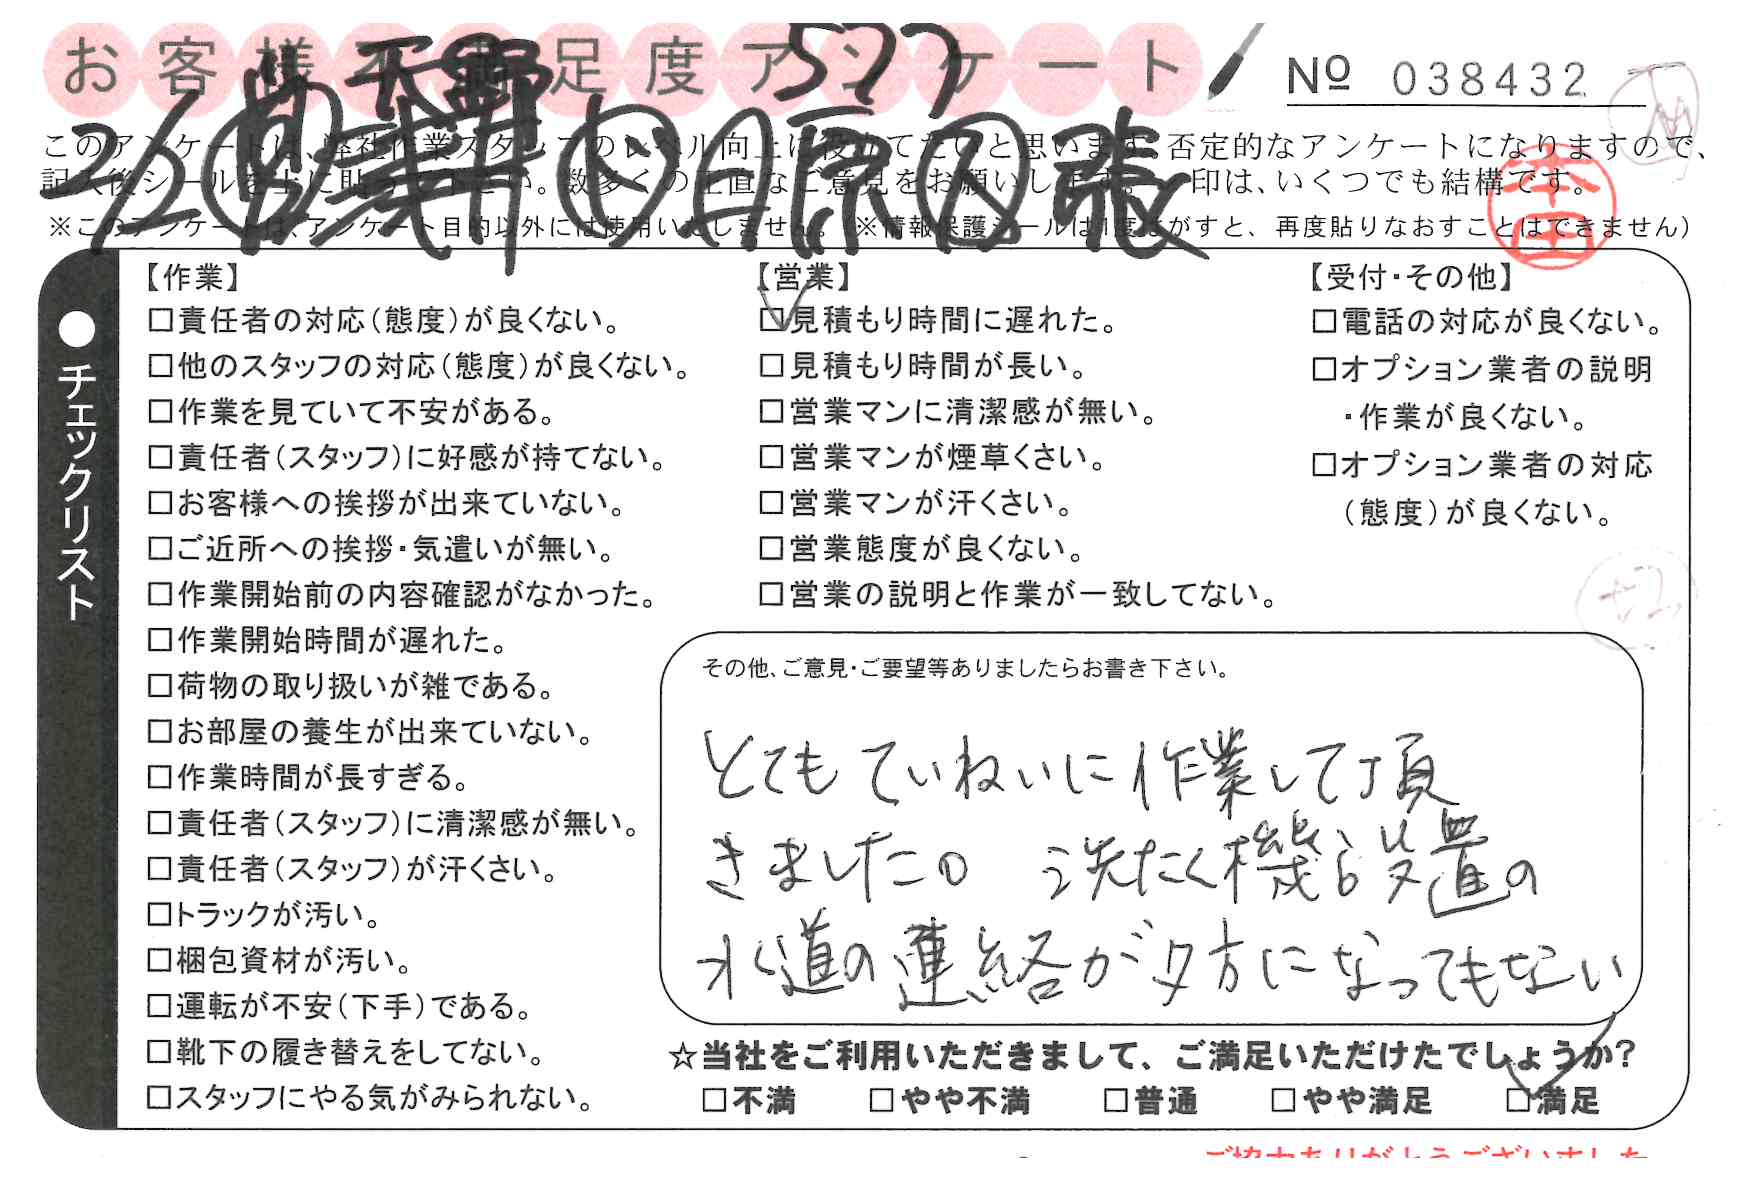 お客様不満足度アンケート
577
No 038432
このアンケートは、弊社作業スタッフのレベル向上に役立てたいと思います。否定的なアンケートになりますので、
記入後シールを上に貼って下さい。数多くの正直なご意見をお願いします。レ印は、いくつでも結構です。
※このアンケートは、アンケート目的以外には使用いたしません。(※情報保護シールは1度はがすと、再度貼りなおすことはできません)
本田
●チェックリスト
【作業】
□責任者の対応(態度)が良くない。
□他のスタッフの対応(態度)が良くない。
□作業を見ていて不安がある。
□責任者(スタッフ)に好感が持てない。
□お客様への挨拶が出来ていない。
□ご近所への挨拶・気遣いが無い。
□作業開始前の内容確認がなかった。
□作業開始時間が遅れた。
□荷物の取り扱いが雑である。
□お部屋の養生が出来ていない。
□作業時間が長すぎる。
□責任者(スタッフ)に清潔感が無い。
□責任者(スタッフ)が汗くさい。
□トラックが汚い。
□梱包資材が汚い。
□運転が不安(下手)である。
□靴下の履き替えをしてない。
□スタッフにやる気がみられない。
【営業】
☑見積もり時間に遅れた。
□見積もり時間が長い。
□営業マンに清潔感が無い。
□営業マンが煙草くさい。
□営業マンが汗くさい。
□営業態度が良くない。
□営業の説明と作業が一致してない。
【受付・その他】
□電話の対応が良くない。
□オプション業者の説明
・作業が良くない。
□オプション業者の対応
(態度)が良くない。
その他、ご意見・ご要望等ありましたらお書き下さい。
とてもていねいに作業して頂
きました。 洗たく機設置の
水道の連絡が夕方になってもない
☆当社をご利用いただきまして、ご満足いただけたでしょうか?
□不満 □やや不満 □普通 □やや満足 ☑満足
ご協力ありがとうございました